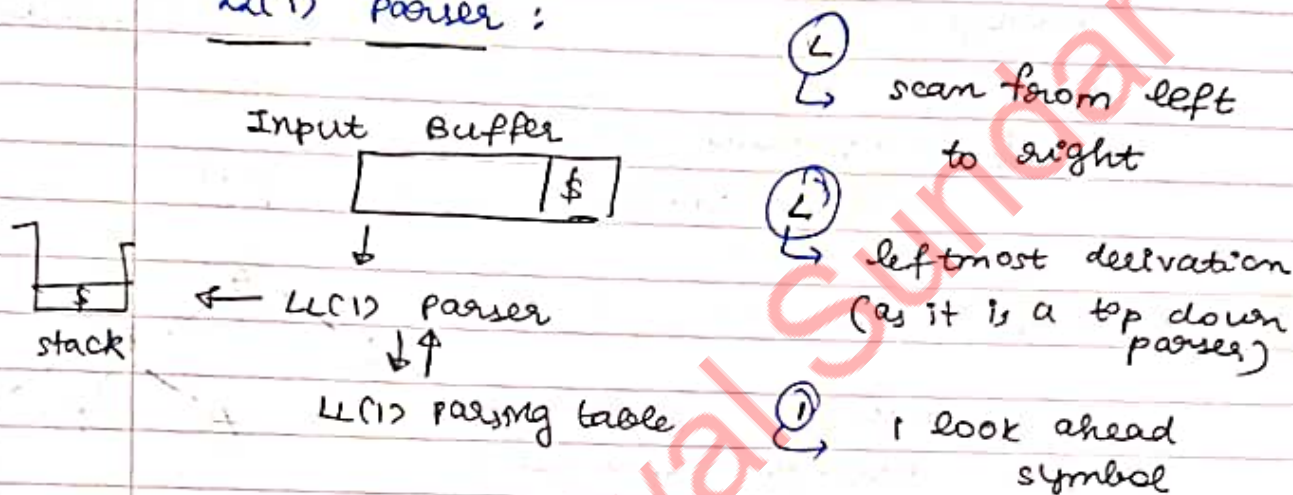 LL(1) Parser :
Input Buffer
$
$
stack
LL(1) Parser
LL(1) parsing table
L
scan from left
to right
L
leftmost derivation
(as it is a top down
parser)
1
1 look ahead
symbol
val Sundar